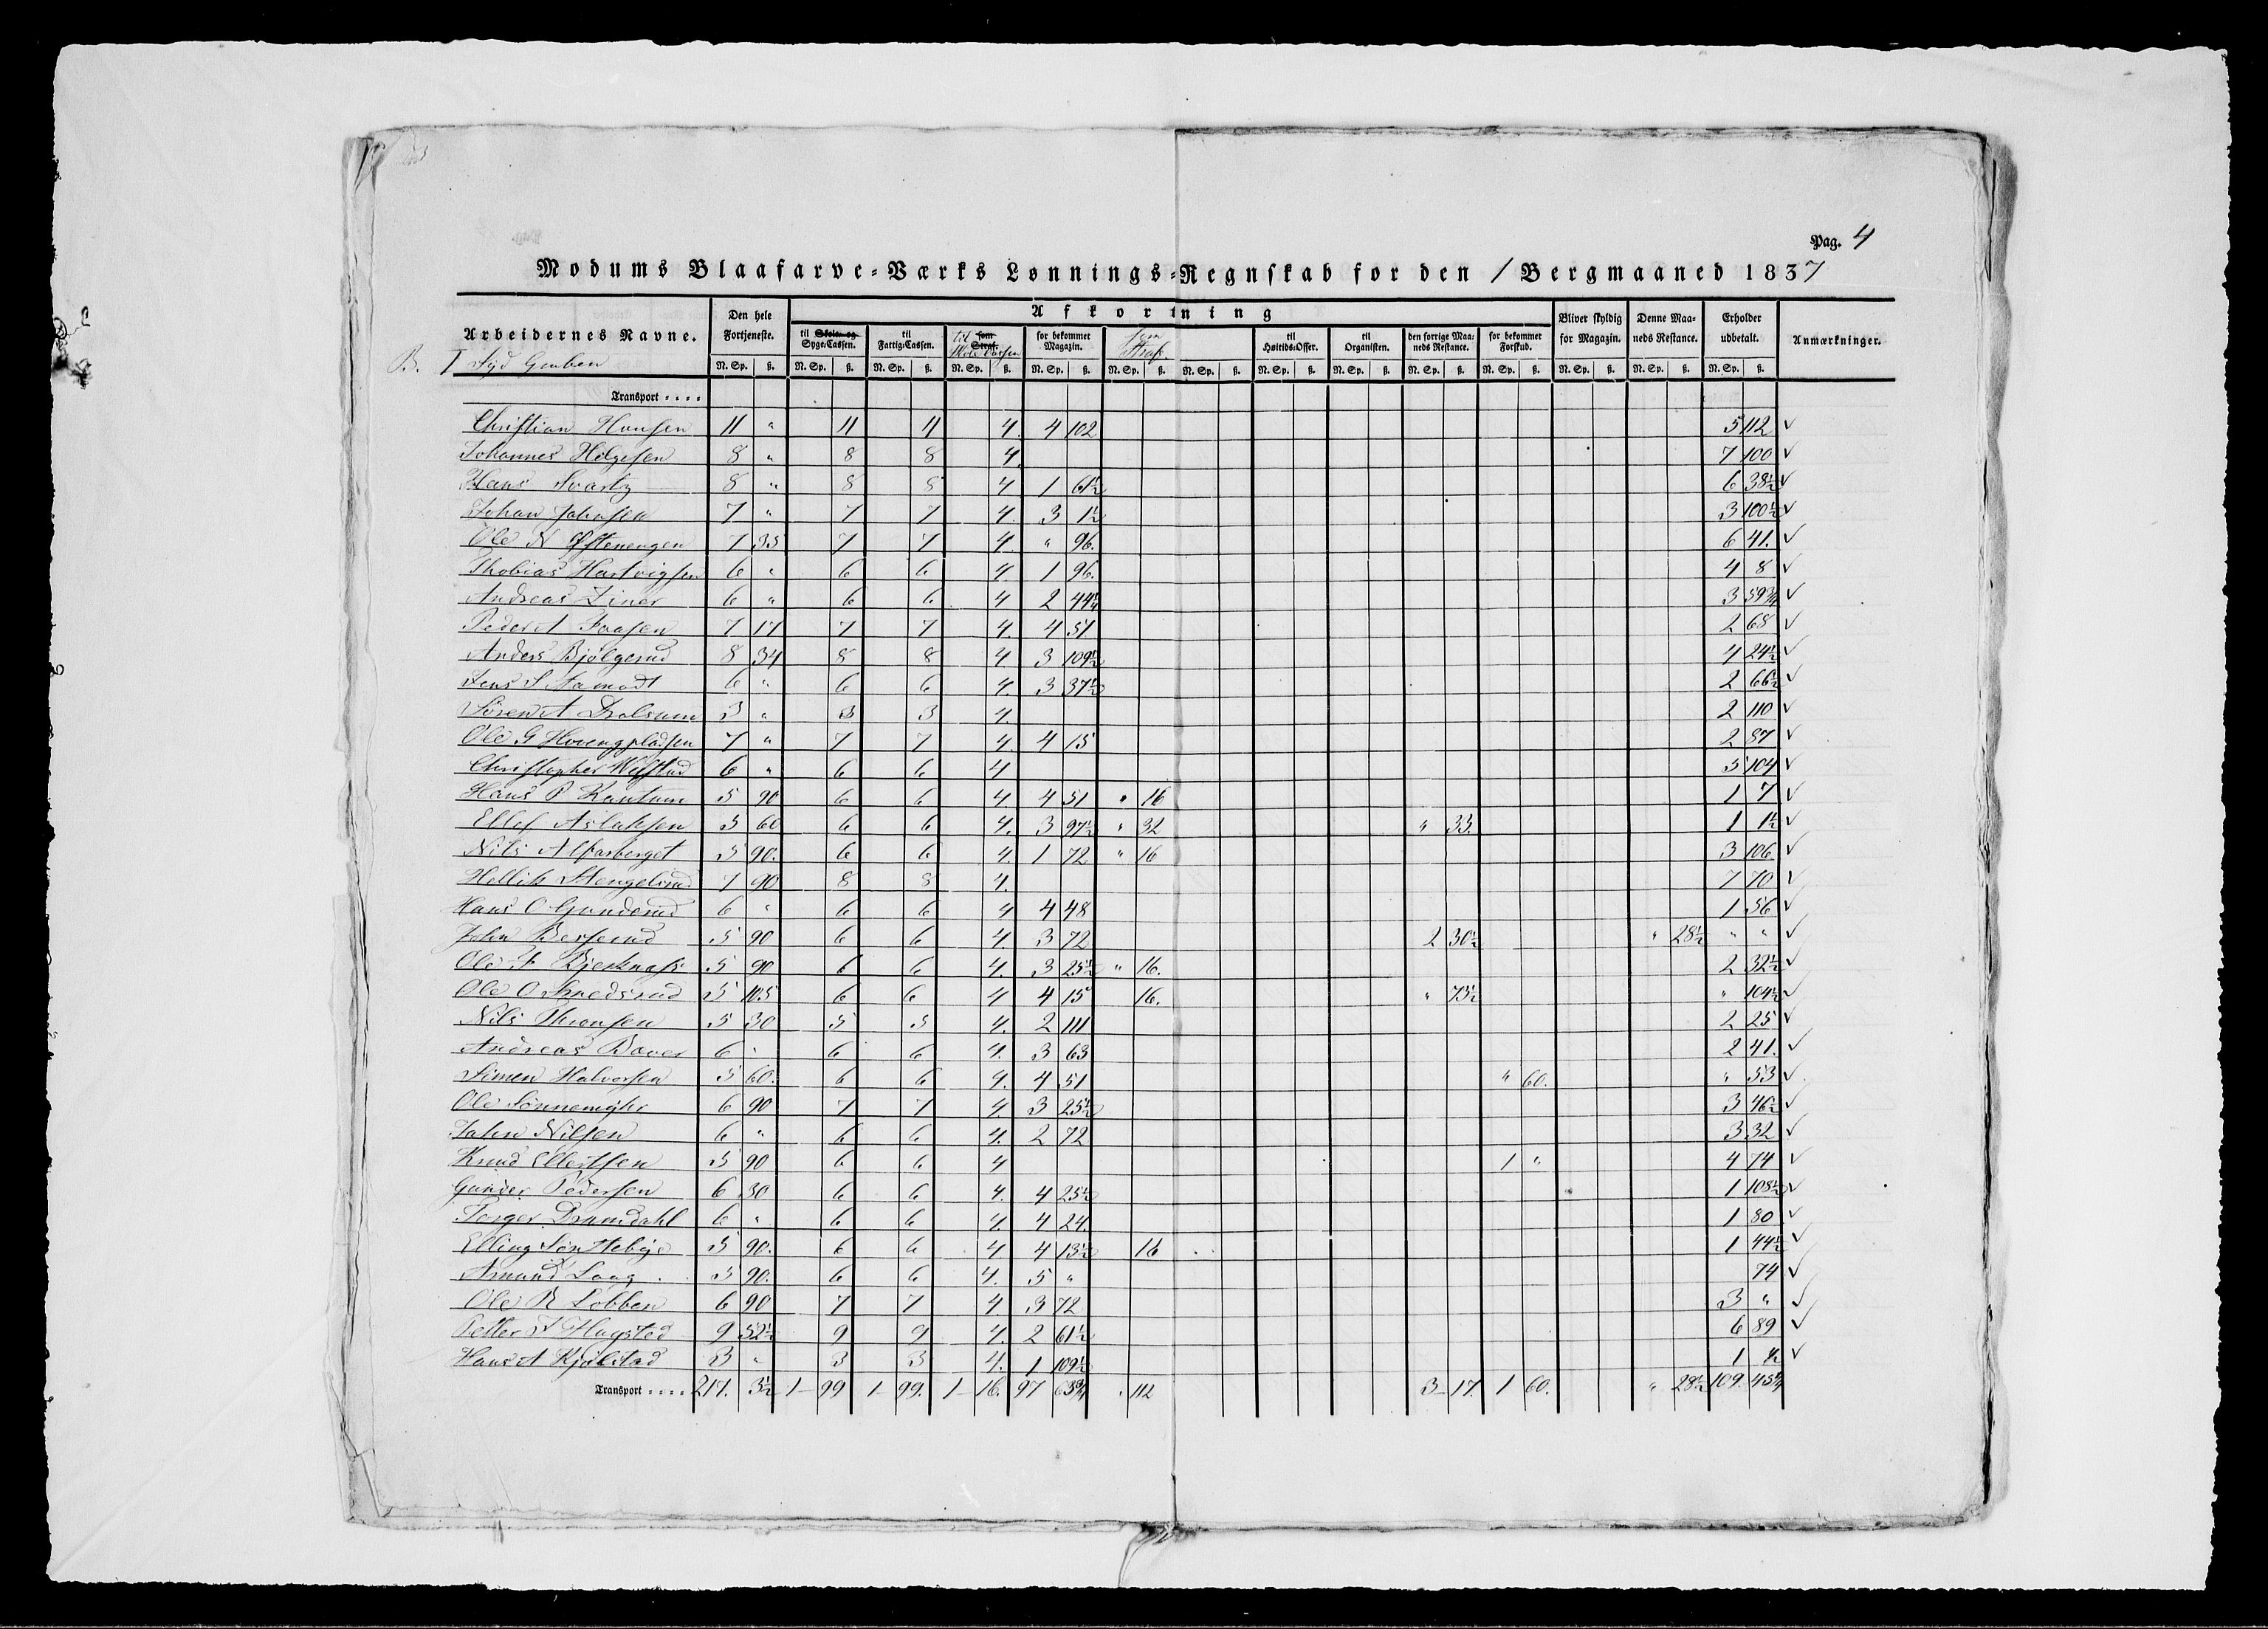 Pag. 4
Modums Blaafarve-Værks Lønnings-Regnskab for den 1 Bergmaaned 1837
Arbeidernes Navne. Den hele Fortjeneste. Afkortning Bliver skyldig for Magazin. Denne Maaneds Restance. Erholder udbetalt. Anmærkninger.
til Skole- og Syge-Cassen. til Fattig-Cassen. til som Straf. Skole Cassen for bekommet Magazin. som Straf til Høitids-Offer. til Organisten. den forrige Maaneds Restance. for bekommet Forskud.
B. I Syd Gruben
N. Sp. ß. N. Sp. ß. N. Sp. ß. N. Sp. ß. N. Sp. ß. N. Sp. ß. N. Sp. ß. N. Sp. ß. N. Sp. ß. N. Sp. ß. N. Sp. ß. N. Sp. ß. N. Sp. ß. N. Sp. ß.
Transport....
Christian Hansen 11 " 11 11 4. 4 102 5 112 ✓
Johannes Helgesen 8 " 8 8 4. 7 100 ✓
Hans Svartz 8 " 8 8 4 1 61½ 6 38½ ✓
Johan Johnsen 7 " 7 7 4. 3 1½ 3 100½ ✓
Ole N Østenengen 7 35 7 7 4. " 96. 6 41. ✓
Thobias Hartvigsen 6 " 6 6 4. 1 96. 4 8 ✓
Andreas Ziner 6 " 6 6 4 2 44¼ 3 59¾ ✓
Peder A Faasen 7 17 7 7 4. 4 51 2 68 ✓
Anders Bjølgerud 8 34 8 8 4 3 109½ 4 24½ ✓
Jens S Aamodt 6 " 6 6 4. 3 37½ 2 66½ ✓
Søren A Drolsum 3 " 3 3 4 2 110 ✓
Ole G Hovengpladsen 7 " 7 7 4. 4 15 2 87 ✓
Christopher 6 " 6 6 4 5 104 ✓
Hans P 5 90 6 6 4 4 51 " 16 1 7 ✓
Ellef Aslaksen 5 60 6 6 4. 3 97½ " 32 " 33. 1 1½ ✓
Nils 5 90. 6 6 4. 1 72 " 16 3 106 ✓
Hellik Stengelsrud 7 90 8 8 4. 7 70 ✓
Hans O Gunderud 6 " 6 6 4 4 48 1 56 ✓
John 5 90 6 6 4. 3 72 2 30½ " 28½ " " ✓
Ole F 5 90 6 6 4. 3 25½ " 16. 2 32½ ✓
Ole O 5 105 6 6 4 4 15 16. " 73½ " 104½ ✓
Nils Thronsen 5 30 5 5 4. 2 111 2 25 ✓
Andreas Baver 6 " 6 6 4. 3 63 2 41. ✓
Simen Halvorsen 5 60. 6 6 4. 4 51 " 60. " 53 ✓
Ole 6 90 7 7 4. 3 25½ 3 46½ ✓
John Nilsen 6 " 6 6 4. 2 72 3 32 ✓
Knud Ellertsen 5 90 6 6 4 1 " 4 74 ✓
Gunder Pedersen 6 30 6 6 4. 4 25½ 1 108½ ✓
Torger Dramdahl 6 " 6 6 4. 4 24. 1 80 ✓
Elling 5 90. 6 6 4 4 13½ 16 1 44½ ✓
Amund Laag 5 90. 6 6 4. 5 " 74 ✓
Ole R Lobben 6 90 7 7 4. 3 72 3 " ✓
Petter 9 52½ 9 9 4. 2 61½ 6 89 ✓
Hans A Kjølstad 3 " 3 3 4. 1 109½ 1 ½ ✓
Transport.... 217. 3½ 1 99 1 99. 1 16. 97 63¾ " 112 3 17. 1 60. " 28½ 109. 45¾